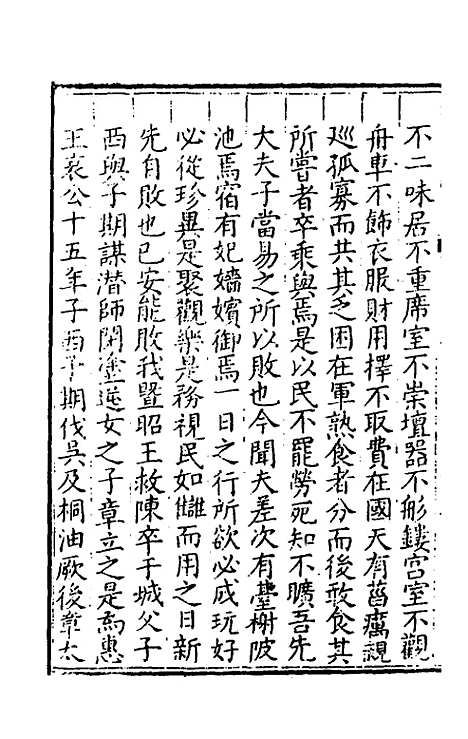 不二味居不重席室不崇壇器不彤鏤宮室不觀
舟車不飾衣服財用擇不取費在國天有菑癘親
巡孤寡而共其乏困在軍熟食者分而後敢食其
所嘗者卒乘與焉是以民不罷勞死知不曠吾先
大夫子當易之所以敗也今聞夫差次有臺榭陂
池焉宿有妃嬙嬪御焉一日之行所欲必成玩好
必從珍異是聚觀樂是務視民如讎而用之日新
先自敗也已安能敗我暨昭王救陳卒于城父子
西與子期謀潛師閉塗逆女之子章立之是為惠
王哀公十五年子西子期伐吳及桐油厥後章太